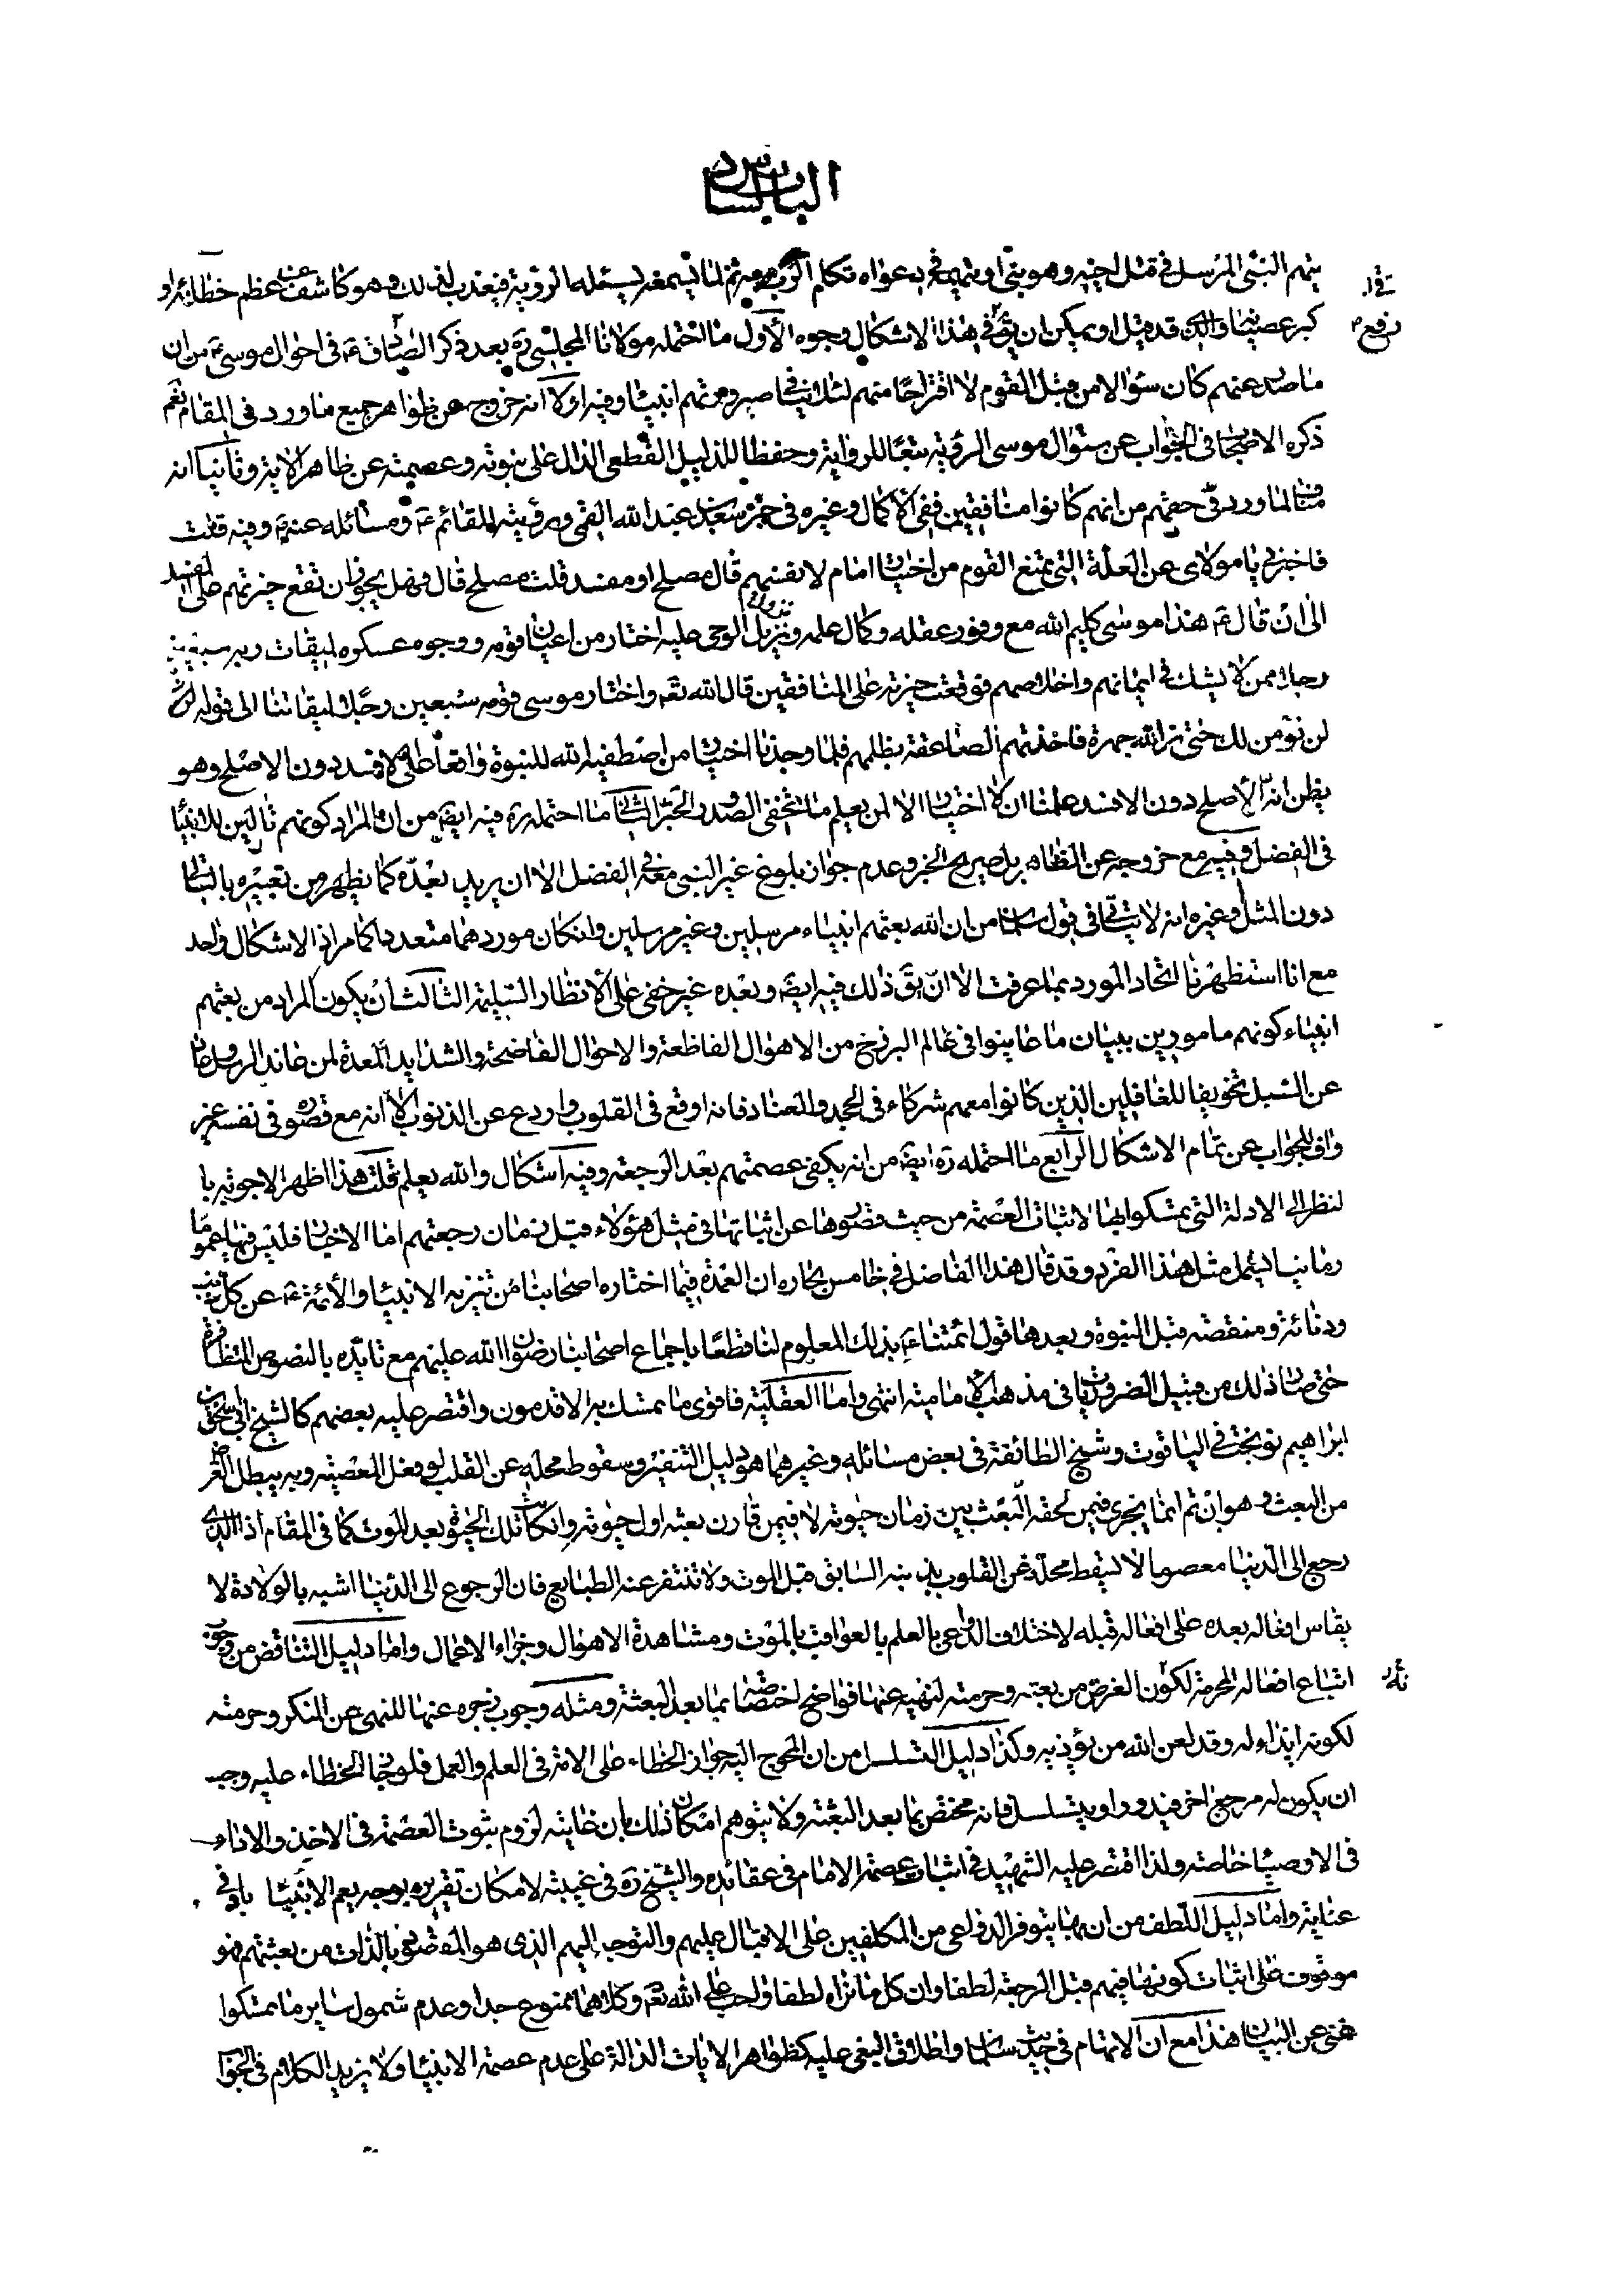 الباب السادس
يتهم النبی المرسل فی قتل اخیه وهو نبی او یتهمه فی دعواه تکلم الرب معه ثم لما یسمعه یسئله الرؤیة فیعذب لذلک وهو کاشف عن عظم خطائه او
کبر عصیانه والذی قد قیل او یمکن ان یق فی رفع هذا الاشکال وجوه الأول ما احتمله مولانا المجلسی ره بعد ذکر الصادق ع فی احوال موسی ع من ان
ما صدر عنهم کان سؤالا من قبل القوم لا اقتراحا منهم لئلا ینافی صیرورتهم انبیاء وفیه اولا انه خروج عن ظواهر جمیع ما ورد فی المقام نعم
ذکره الاصحاب فی الجواب عن سئوال موسی الرؤیة تبعا للروایة وحفظا للدلیل القطعی الدال علی نبوته وعصمته عن ظاهر الایة وثانیا انه
مناف لما ورد فی حقهم من انهم کانوا منافقین ففی الاکمال وغیره فی خبر سعد بن عبد الله القمی ورؤیته للقائم ع ومسائله عنه وفیه قلت
فاخبرنی یا مولای عن العلة التی تمنع القوم من اختیار امام لانفسهم قال مصلح او مفسد قلت مصلح قال فهل یجوز ان تقع خیرتهم علی المفسد
الی ان قال ع هذا موسی کلیم الله مع وفور عقله وکمال علمه ونزول الوحی علیه اختار من اعیان قومه ووجوه عسکره لمیقات ربه سبعین
رجلا ممن لا یشک فی ایمانهم واخلاصهم فوقعت خیرته علی المنافقین قال الله تع واختار موسی قومه سبعین رجلا لمیقاتنا الی قوله
لن نؤمن لک حتی نر الله جهرة فاخذتهم الصاعقة بظلمهم فلما وجدنا اختیار من اصطفیه الله للنبوة واقعا علی الافسد دون الاصلح وهو
یظن انه الاصلح دون الافسد علمنا ان لا اختیار الا لمن یعلم ما تخفی الصدور الخبر الثانی ما احتمله ره فیه ایضا من ان المراد کونهم تالین للانبیاء
فی الفضل وفیه مع خروجه عن الظاهر بل صریح الخبر وعدم جواز بلوغ غیر النبی معه فی الفضل الا ان یرید بعده کما یظهر من تعبیره بالتالی
دون المثل وغیره انه لا یتاتی فی قول من ان الله بعثهم انبیاء مرسلین وغیر مرسلین وان کان موردهما متعددا کما مر اذ الاشکال واحد
مع انا استظهرنا اتحاد المورد بما عرفت الا ان یق ذلک فیه ایضا وبعده غیر خفی علی الانظار السلیمة الثالث ان یکون المراد من بعثهم
انبیاء کونهم مامورین ببیان ما عاینوا فی عالم البرزخ من الاهوال الفاظعة والاحوال الفاضحة والشداید المعدة لمن عاند الرسل
عن السبل تخویفا للغافلین الذین کانوا معهم شرکاء فی الجحد والعناد فانه اوقع فی القلوب واردع عن الذنوب الا انه مع قصوره فی نفسه غیر
واف للجواب عن تمام الاشکال الرابع ما احتمله ره ایضا من انه یکفی عصمتهم بعد الرجعة وفیه اشکال والله یعلم قلت هذا اظهر الاجوبة با
لنظر الی الادلة التی تمسکوا بها لاثبات العصمة من حیث قصورها عن اثباتها فی مثل هؤلاء قبل زمان رجعتهم اما الاخبار فلیس فیها عموما
زمانیا لیشمل مثل هذا الفرد وقد قال هذا الفاضل فی خامس بحاره ان العمدة فیما اختاره اصحابنا من تنزیه الانبیاء والائمة ع عن کل ذنب
ودنائة ومنقصة قبل النبوة وبعدها قول ائمتنا ع بذلک المعلوم لنا قطعا باجماع اصحابنا رضوان الله علیهم مع تایده بالنصوص المتظافرة
حتی صار ذلک من قبیل الضروریات فی مذهب الامامیة انتهی واما العقلیة فاقوی ما تمسک به الاقدمون واقتصر علیه بعضهم کالشیخ ابی اسحق
ابراهیم نوبخت فی الیاقوت وشیخ الطائفة فی بعض مسائله وغیرهما هو دلیل التنفیر وسقوط محله عن القلب لو فعل المعصیة وبه یبطل الغرض
من البعث وهو ان تم انما یجری فیمن لحقه البعث بین زمان حیوته لا فیمن قارن بعثه اول حیوته وان کانت تلک الحیوة بعد الموت کما فی المقام اذ الذی
رجع الی الدنیا معصوما لا یسقط محله عن القلوب بذنبه السابق قبل الموت ولا تتنفر عنه الطبایع فان الرجوع الی الدنیا اشبه بالولادة لا
یقاس افعاله بعده علی افعاله قبله لاختلاف الدواعی بالعلم بالعواقب بالموت ومشاهدة الاهوال وجزاء الاعمال واما دلیل التناقض من وجوب
اتباع افعاله المحرمة لکون الغرض من بعثه وحرمته لنهیه عنها فواضح اختصاصه بما بعد البعثة ومثله وجوب زجره عنها للنهی عن المنکر وحرمته
لکونه ایذاء له وقد لعن الله من یؤذیه وکذا دلیل التسلسل من ان المحوج الیه جواز الخطاء علی الامة فی العلم والعمل فلو جاز الخطاء علیه وجب
ان یکون له مرجع اخر فیدور او یتسلسل فانه مختص بما بعد البعثة ولا یتوهم امکان ذلک بان غایته لزوم ثبوت العصمة فی الاخذ والاداء
فی الاوصیاء خاصة ولذا اقتصر علیه الشهید فی اثبات عصمة الامام فی عقائده والشیخ ره فی غیبته لامکان تقریره بوجه یعم الانبیاء باوفی
عنایة واما دلیل اللطف من ان بها یتوفر الدواعی من المکلفین علی الاقبال علیهم والتوجه الیهم الذی هو المقصود بالذات من بعثتهم فهو
موقوف علی اثبات کونها فیهم قبل الرجعة لطفا وان کل ما نراه لطفا واجب علی الله تع وکلاهما ممنوع جدا وعدم شمول سایر ما تمسکوا
غنی عن البیان هذا مع ان الاتهام فی حدیث واطلاق البغی علیه کظواهر الایات الدالة علی عدم عصمة الانبیاء ولا یزید الکلام فی الجواب